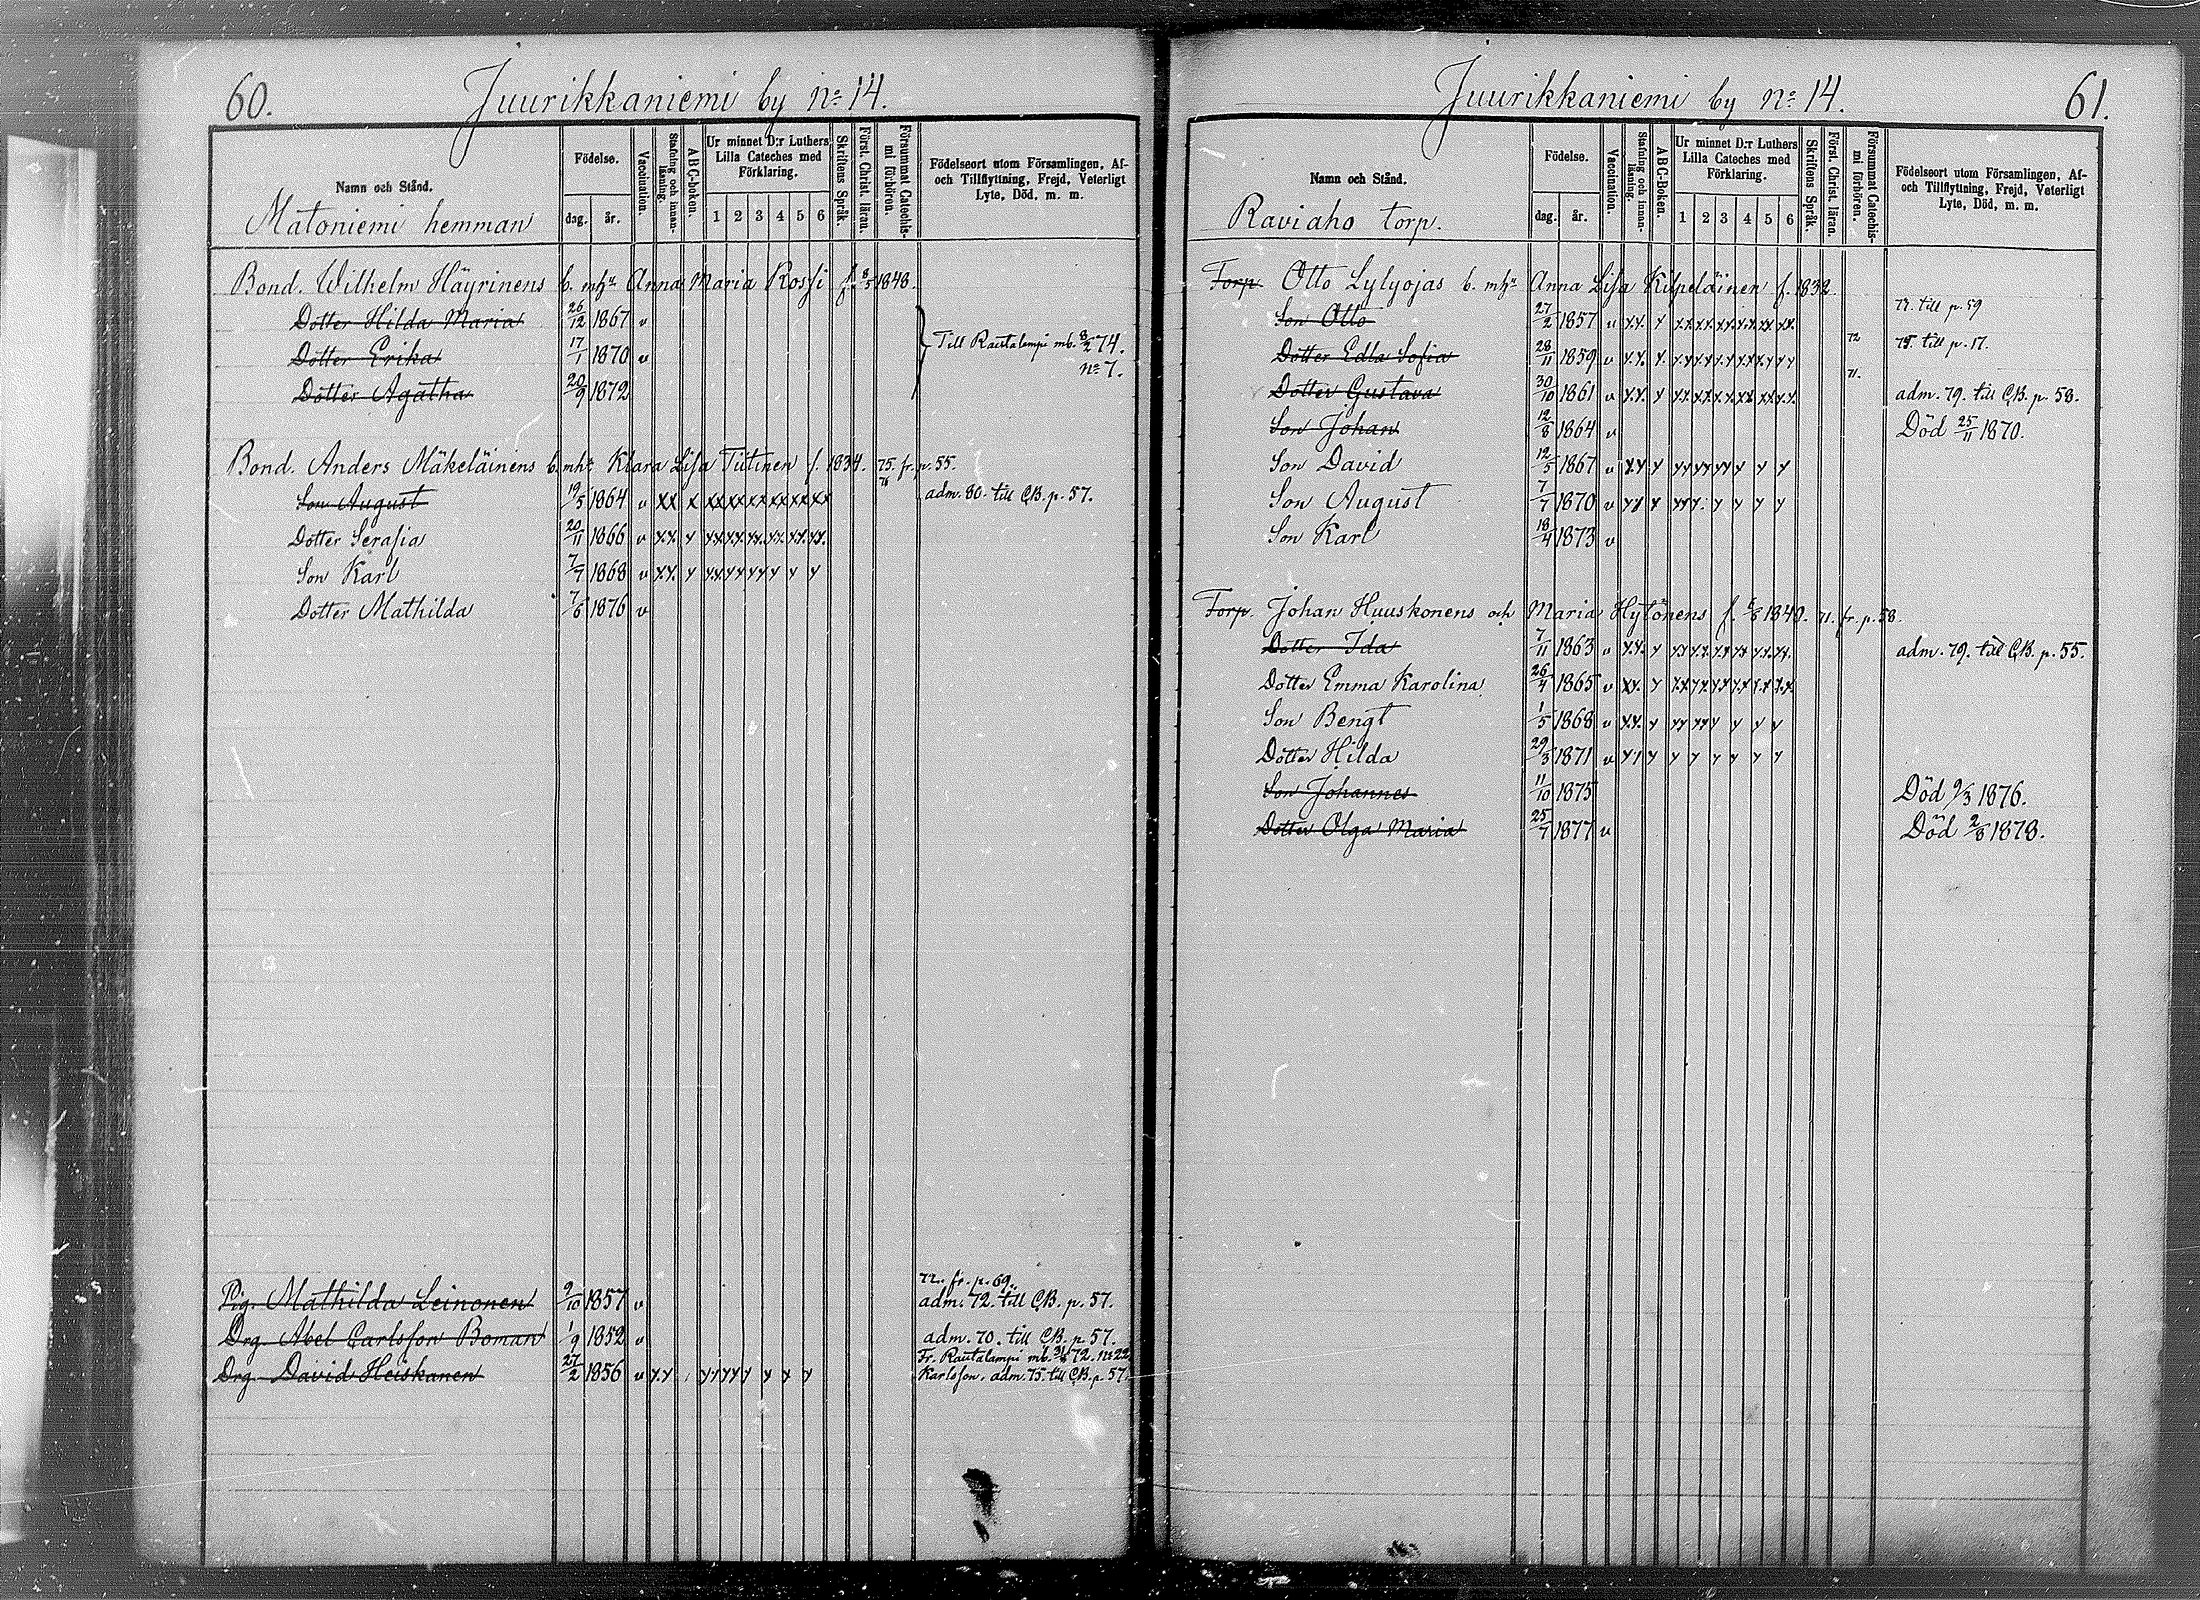 60.
Juurikkaniemi by no 14.
Namn och Stånd.
Födelse.
dag.
år.
Vaccination.
Stafning och innan-läsning.
ABC-boken.
Ur minnet D:r Luthers Lilla Cateches med Förklaring.
1 2 3 4 5 6
Skriftens Språk.
Först. Christ. läran.
Försummat Catechis-mi förhören.
Födelseort utom Församlingen, Af- och Tillflyttning, Frejd, Veterligt Lyte, Död, m. m.
Matoniemi hemman
Bond. Wilhelm Häyrinens b. mhu Anna Maria Rossi f. 8/5 1848.
Dotter Hilda Maria 26/12 1867 v
Dotter Erika 17/1 1870 v Till Rautalampi mb. 8/2 74.
no 7.
Dotter Agatha 20/9 1872
Bond. Anders Mäkeläinens b. mhu Klara Lisa Tiitinen f. 1834. 75. fr. p. 55.
76
Son August 19/5 1864 v xx x xx xx xx xx xx xx adm. 80. till CB. p. 57.
Dotter Serafia 20/11 1866 v
Son Karl 7/7 1868 v
Dotter Mathilda 7/6 1876 v
72. fr. p. 69.
Pig. Mathilda Leinonen 9/10 1857 v adm. 72. till CB. p. 57.
Drg. Abel Carlsson Boman 1/9 1852 v adm. 70. till CB. p. 57.
Fr. Rautalampi mb. 72. no 22
Drg. David Heiskanen 27/2 1856 v Karlsson. adm. 75. till CB. p. 57.
Juurikkaniemi by no 14.
61.
Namn och Stånd.
Födelse.
dag.
år.
Vaccination.
Stafning och innan-läsning.
ABC-Boken.
Ur minnet D:r Luthers Lilla Cateches med Förklaring.
1 2 3 4 5 6
Skriftens Språk.
Först. Christ. läran.
Försummat Catechis-mi förhören.
Födelseort utom Församlingen, Af- och Tillflyttning, Frejd, Veterligt Lyte, Död, m. m.
Raviaho torp.
Torp. Otto Lylyojas b. mhu Anna Lisa Kilpeläinen f. 1832
Son Otto 27/2 1857 v 77. till p. 59
Dotter Edla Sofia 28/11 1859 v 72 75. till p. 17.
Dotter Gustava 30/10 1861 v 71. adm. 79. till CB. p. 58.
Son Johan 12/8 1864 v Död 25/11 1870.
Son David 12/5 1867 v
Son August 7/7 1870 v
Son Karl 18/4 1873 v
Torp. Johan Huuskonens och Maria Hytönens f. 1840. 71. fr. p. 58.
Dotter Ida 7/11 1863 v adm. 79. till CB. p. 55.
Dotter Emma Karolina 26/4 1865 v
Son Bengt 1/5 1868 v
Dotter Hilda 29/3 1871 v
Son Johannes 11/10 1875 Död 9/3 1876.
Dotter Olga Maria 25/7 1877 v Död 2/8 1878.